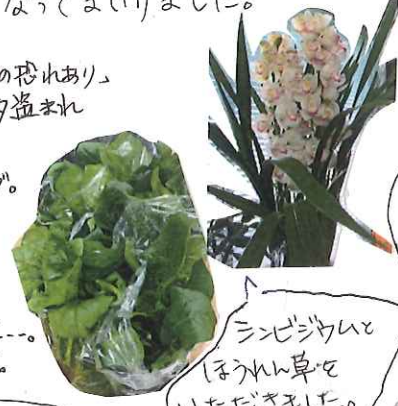 なってまいりました。
の恐れあり」
盗まれ
シンビジウムと
ほうれん草を
いただきました。